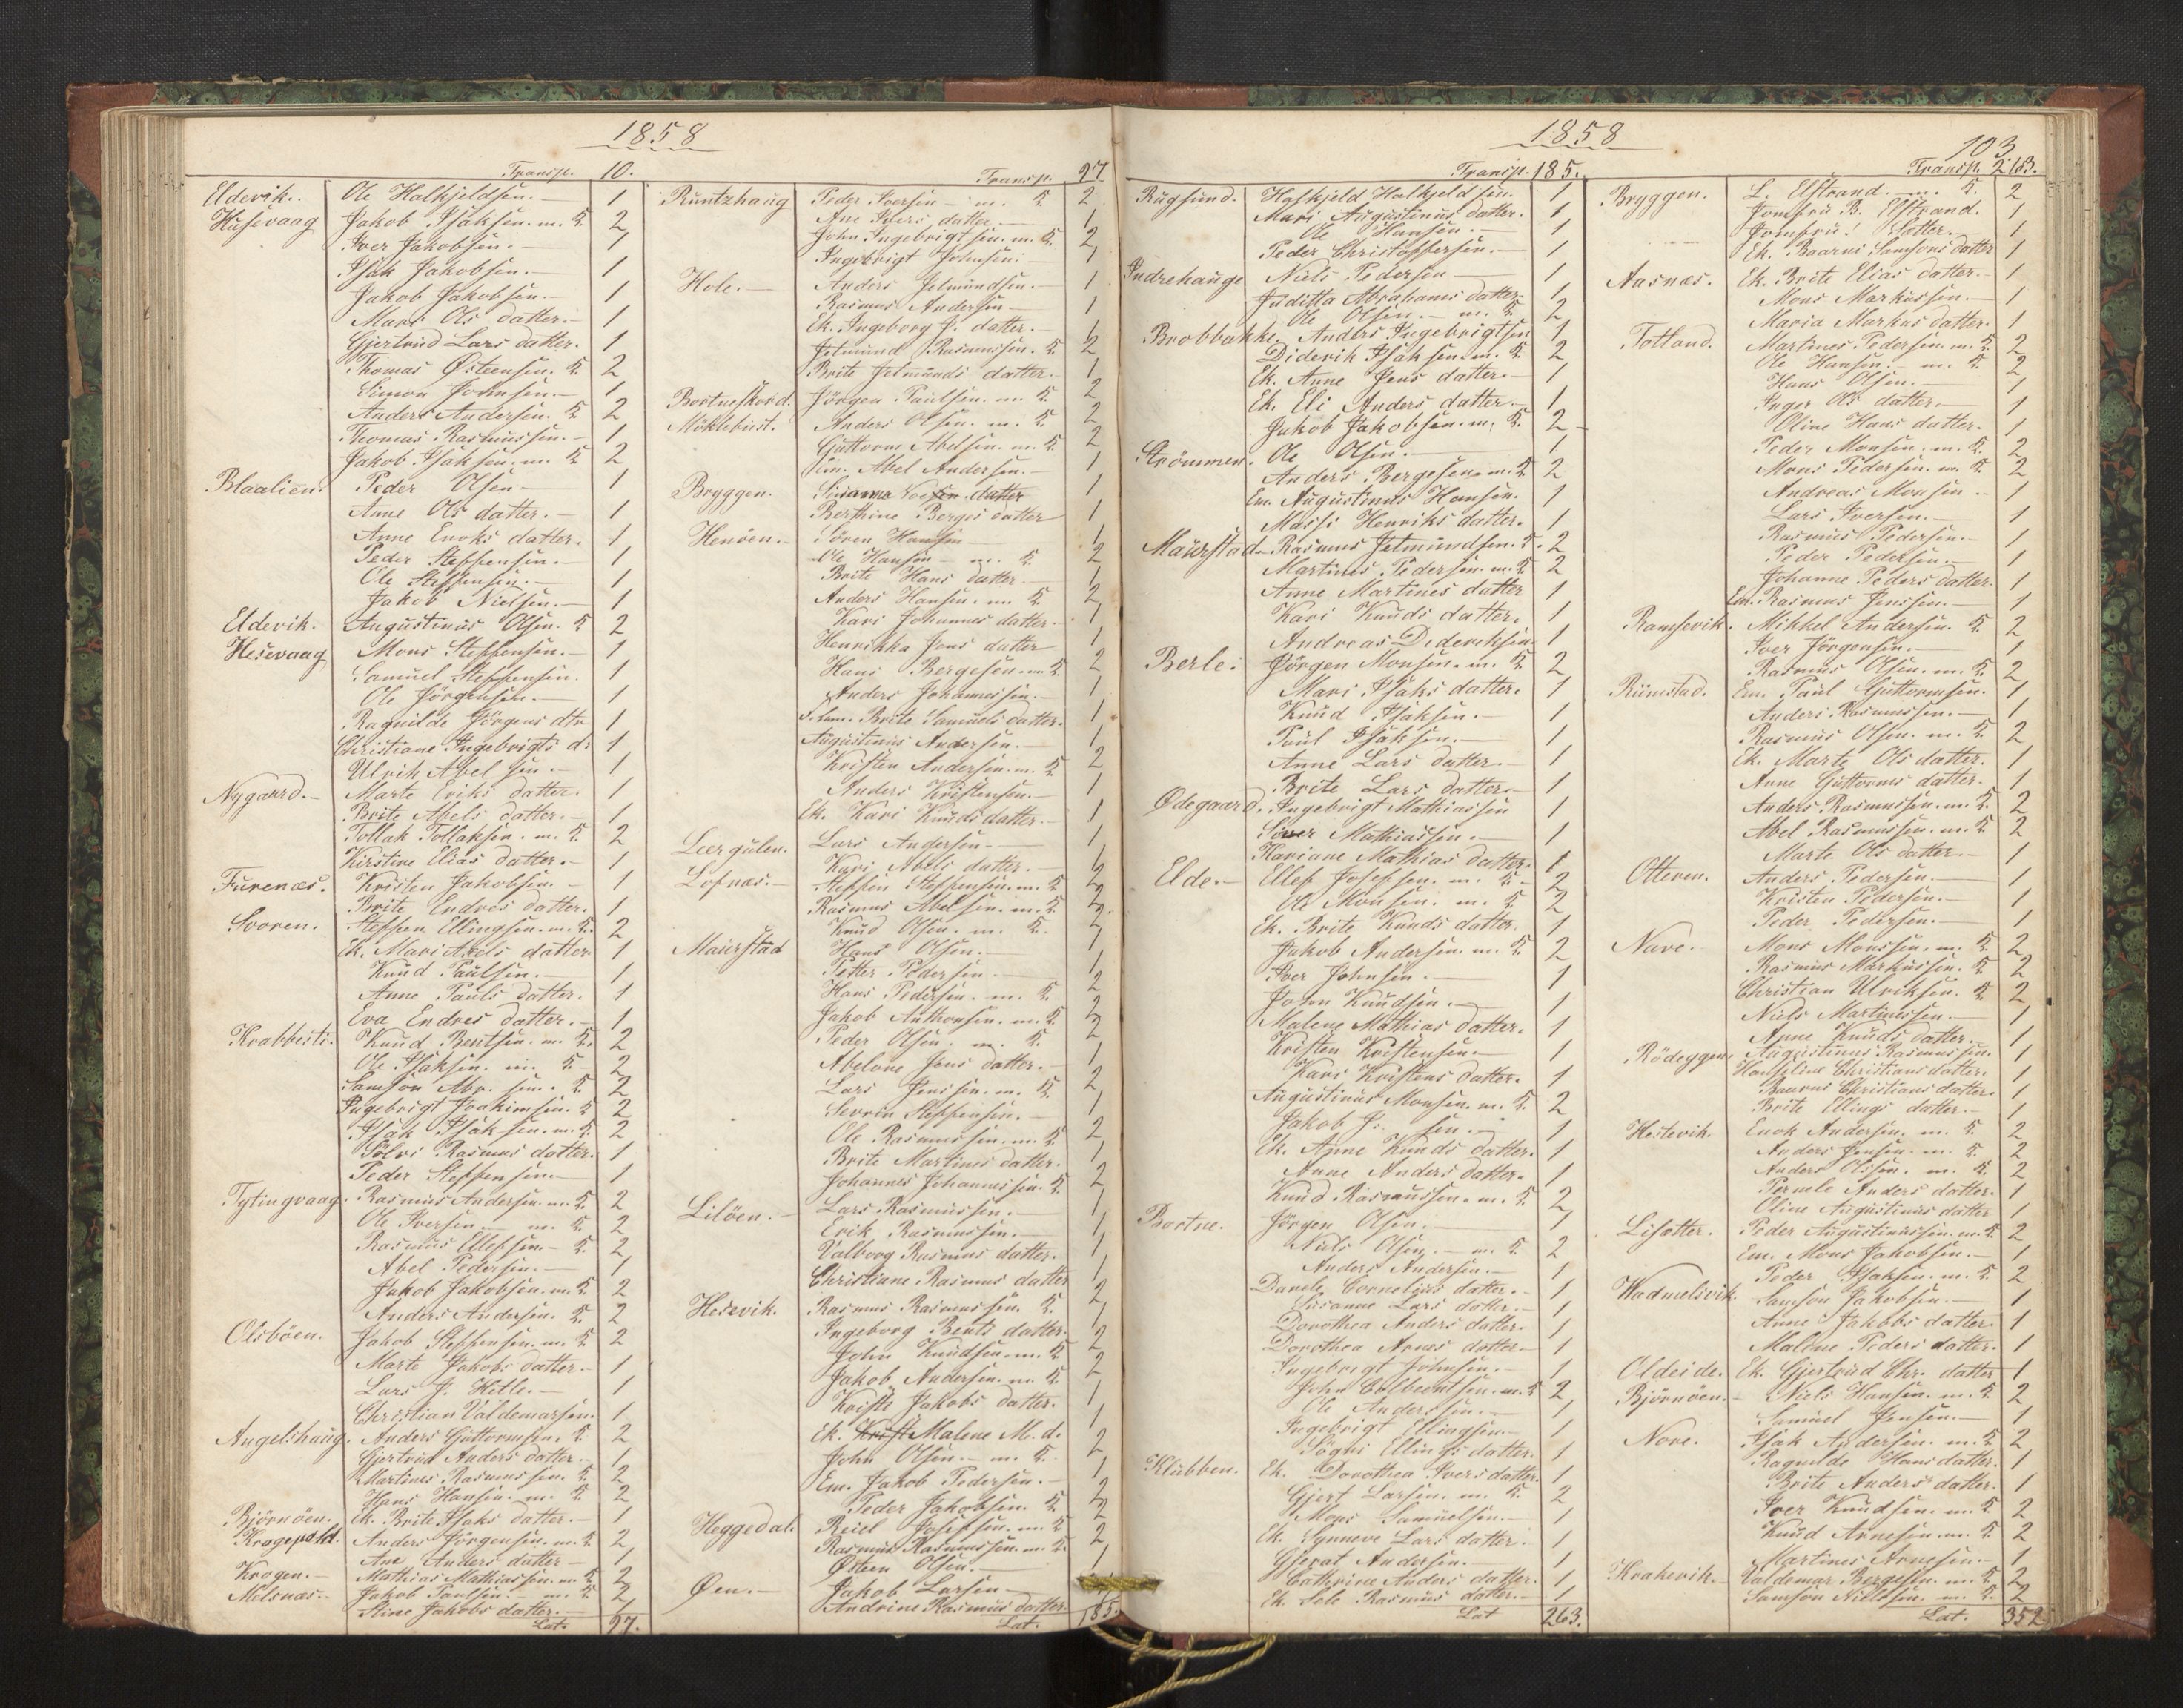 1858
Transp. 10.
Eldevik. Ole Halkjeldsen. 1
Husevaag Jakob Isaksen. m. K. 2
Iver Jakobsen. 1
Isak Jakobsen. 1
Jakob Jakobsen. 1
Mari Ols datter. 1
Gjertrud Lars datter. 1
Thomas Østensen. K. 2
Simon Johnsen. 1
Anders Andersen. K. 2
Thomas Rasmussen. 1
Jakob Isaksen. m. K. 2
Blaalien. Peder Olsen 1
Anne Ols datter. 1
Anne Enoks datter. 1
Peder Steffensen. 1
Ole Steffensen. 1
Jakob Nielsen. 1
Eldevik. Augustinus Olsen. K. 2
Hesevaag Mons Steffensen. 1
Samuel Steffensen. 1
Ole Jörgensen. 1
Ragnilde Jörgens dtr 1
Christiane Ingebrigts d: 1
Ulrik Abelsen. 1
Nygaard. Marte Eriks datter. 1
Brite Abels datter. 1
Tollak Tollaksen. m. K. 2
Kirstine Elias datter. 1
Furenæs. Kristen Jakobsen. 1
Brite Endres datter. 1
Svoren. Steffen Ellingsen. m. K. 2
Ek. Mari Axels datter 1
Knud Paulsen. 1
Anne Pauls datter. 1
Eva Endres datter. 1
Krabbesti. Knud Bentsen. m. K. 2
Ole Isaksen. m. K. 2
Samson Abr. sen. K. 2
Ingebrigt Joakimsen. K. 2
Isak Isaksen. m. K. 2
Sølvi Rasmus datter. 1
Peder Steffensen. 1
Tytingvaag. Rasmus Andersen. m. K. 2
Ole Iversen. m. K. 2
Rasmus Ellefsen. K. 2
Abel Pedersen. 1
Jakob Jakobsen. m. K. 2
Anders Andersen. K. 2
Olsböen. Jakob Steffensen. m. K. 2
Marte Jakobs datter. 1
Lars J. Hetle. 1
Christian Valdemarsen. 1
Angelshaug. Anders Guttormsen. K. 2
Gjertrud Anders datter. 1
Martines Rasmussen. K. 2
Hans Hansen. m. K. 2
Björnöen. Ek. Brite Isaks datter. 1
Kragepold. Anders Jörgensen. m. K. 2
Ane Anders datter 1
Krogen. Mathias Mathiassen. m. K. 2
Melsnæs. Jakob Paulsen. m. K. 2
Stine Jakobs datter. 1
Lat. 97.
Transp. 97
Runtzhaug Peder Iversen m. K. 2
Ane Ivers datter. 1
John Ingebrigtsen. m. K. 2
Ingebrigt Johnsen. 1
Hole. Anders Jetmundsen. 1
Rasmus Andersen 1
Ek. Ingeborg J. datter. 1
Jetmund Rasmussen. K. 2
Brite Jetmunds datter. 1
Bortneskord. Jörgen Paulsen. m. K. 2
Möklebust. Anders Olsen. m. K. 2
Guttorm Abelsen. m. K. 2
Em. Abel Andersen. 1
Bryggen. Susanna datter 1
Berthine Berges datter 1
Henöen. Sören Hansen 1
Ole Hansen m. K. 2
Brite Hans datter. 1
Anders Hansen. m. K. 2
Kari Johannes datter. 1
Henrikka Jens datter 1
Hans Bergesen. m. K. 2
Anders Johannessen. 1
Brite Samuels datter. 1
Augustinus Andersen. 1
Kristen Andersen. m. K. 2
Anders Kristensen. 1
Ek. Kari Knuds datter. 1
Leergulen. Lars Andersen 1
Kari Abels datter. 1
Lofnæs. Steffen Steffensen. m. K. 2
Rasmus Abelsen. m. K. 2
Knud Olsen. m. K. 2
Maurstad Hans Olsen. 1
Petter Pedersen. 1
Hans Pedersen. m. K. 2
Jakob Anthonsen. m. K. 2
Peder Olsen. m. K. 2
Abelone Jens datter. 1
Lars Jenssen. m. K. 2
Severin Steffensen. 1
Ole Rasmussen. m. K. 2
Brite Martines datter. 1
Johannes Johannessen. K. 2
Lilöen. Lars Rasmussen. 1
Erik Rasmussen. 1
Valborg Rasmus datter. 1
Christiane Rasmus datter 1
Hesevik. Rasmus Rasmussen. K. 2
Ingeborg Bents datter. 1
John Knudsen. m. K. 2
Jakob Andersen. m. K. 2
Kristi Jakobs datter. 1
Ek. Malene M. d. 1
John Olsen. m. K. 2
Em. Jakob Pedersen. 1
Peder Jakobsen. K. 2
Heggedal. Reiel Josefsen. m. K. 2
Rasmus Rasmussen. m. K. 2
Østen Olsen. 1
Øen. Jakob Larsen
Andrine Rasmus datter.
Lat. 185.
1858
103
Transp. 185.
Rugsund. Halkjeld Halkjeldsen. 1
Mari Augustinus datter. 1
Ole Hansen. 1
Peder Christoffersen. 1
Indrehauge Niels Pedersen 1
Juditta Abrahams datter 1
Ole Olsen. m. K. 2
Brobbakke. Anders Ingebrigtsen 1
Diderik Isaksen. m. K. 2
Ek. Anne Jens datter. 1
Ek. Eli Anders datter. 1
Jakob Jakobsen. m. K. 2
Strömmen. Ole Olsen. 1
Anders Bergesen. m. K. 2
Em. Augustinus Hansen. 1
Massi Henriks datter. 1
Maurstad. Rasmus Jetmundsen. K. 2
Martines Pedersen. m. K. 2
Anne Martines datter 1
Kari Knuds datter. 1
Andreas Dideriksen 1
Berle. Jörgen Monsen. m. K. 2
Mari Isaks datter. 1
Knud Isaksen. 1
Paul Isaksen. 1
Anne Lars datter. 1
Brite Lars datter. 1
Ødegaard. Ingebrigt Mathiassen 1
Mathiassen. 1
Mariane Mathias datter. 1
Elde. Ellef Josefsen. m. K. 2
Ole Monsen. m. K. 2
Ek. Brite Knuds datter. 1
Jakob Andersen. m. K. 2
Iver Johnsen. 1
John Knudsen. 1
Malene Mathias datter. 1
Kristen Kristensen. 1
Kari Kristens datter. 1
Augustinus Monsen. m. K. 2
Jakob J. sen. 1
Ek. Anne Knuds datter. 1
Anne Anders datter. 1
Knud Rasmussen. m. K. 2
Bortne. Jörgen Olsen. 1
Niels Olsen. m. K. 2
Anders Andersen. 1
Danele Cornelius datter. 1
Susanne Lars datter. 1
Dorothea Anders datter. 1
Dorothea Arnes datter 1
Ingebrigt Johnsen. 1
John Colbentsen. m. K. 2
Ole Anderssen. 1
Ingebrigt Ellingsen. 1
Sögni Ellings datter. 1
Klubben. Ek. Dorothea Ivers datter. 1
Gjert Larsen. m. K. 2
Mons Samuelsen. 1
Ek. Synneve Lars datter. 1
Andersen. 1
Cathrine Anders datter. 1
Ek. Sele Rasmus datter. 1
Lat 263.
Transp. 263.
Bryggen. L. Elstrand. m. K. 2
Jomfru B. Elstrand. 1
Jomfru Slætter. 1
Ek. Baarni Samsons datter 1
Aasnæs. Ek. Brite Elias datter. 1
Mons Markussen. 1
Maria Markus datter. 1
Totland. Martines Pedersen. m. K. 2
Ole Hansen. m. K. 2
Hans Olsen. 1
Inger Ols datter. 1
Oline Hans datter. 1
Peder Monsen. m. K. 2
Mons Pedersen. m. K. 2
Andreas Monsen 1
Lars Iversen. 1
Rasmus Pedersen. 1
Peder Pedersen. 1
Johanne Peders datter. 1
Em. Rasmus Jenssen. 1
Ramsevik. Mikkel Andersen. K. 2
Iver Jörgensen. 1
Rasmus Olsen. m. K. 2
Rimstad. Em. Paul Guttormsen. 1
Anders Rasmussen. 1
Rasmus Olsen. m. K. 2
Ek. Marte Ols datter. 1
Anne Guttorms datter. 1
Anders Rasmussen. m. K. 2
Abel Rasmussen. m. K. 2
Marte Ols datter. 1
Otteren. Anders Pedersen. 1
Kristen Pedersen. 1
Peder Pedersen. 1
Nave. Mons Monssen. m. K. 2
Rasmus Markussen. K. 2
Christian Ulriksen. K. 2
Niels Martinussen. 1
Anne Knuds datter. 1
Rödeygen. Augustinus Rasmussen. 1
Hanseline Christians datter. 1
Baarni Christians datter. 1
Brite Ellings datter. 1
Hestevik. Enok Andersen. m. K. 2
Anders Jensen. m. K. 2
Anders Olssen. m. K. 2
Pernele Anders datter. 1
Oline Augustinus datter 1
Lisætter. Peder Augustinussen. m. K. 2
Em. Mons Jakobsen. 1
Peder Isaksen. m. K. 2
Vadmelsvik. Samson Jakobsen. 1
Anne Jakobs datter. 1
Malene Peders datter. 1
Oldeide. Ek. Gjertrud Chr. datter 1
Björnöen. Niels Hansen. m. K. 2
Samuel Jensen. 1
Nore. Isak Andersen. m. K. 2
Ragnilde Hans datter. 1
Brite Anders datter. 1
Iver Knudsen. m. K. 2
Knud Arnesen. m. K. 2
Martines Arnesen. 1
Krakevik. Valdemar Bergesen. m. K. 2
Samson Nielssen. m. K. 2
Lat. 352